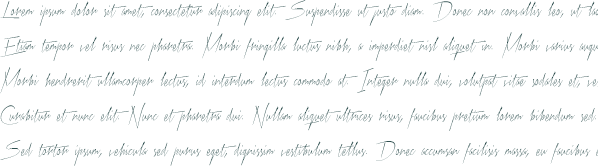 Lorem ipsum dolor sit amet, consectetur adipiscing elit. Suspendisse ut justo diam. Donec non convallis leo, ut la
Etiam tempor vel risus nec pharetra. Morbi fringilla luctus nibh, a imperdiet nisl aliquet in. Morbi varius augu
Morbi hendrerit ullamcorper lectus, id interdum lectus commodo at. Integer nulla dui, volutpat vitae sodales et, ve
Curabitur et nunc elit. Nunc et pharetra dui. Nullam aliquet ultrices risus, faucibus pretium lorem bibendum sed.
Sed tortor ipsum, vehicula sed purus eget, dignissim vestibulum tellus. Donec accumsan facilisis massa, eu faucibus